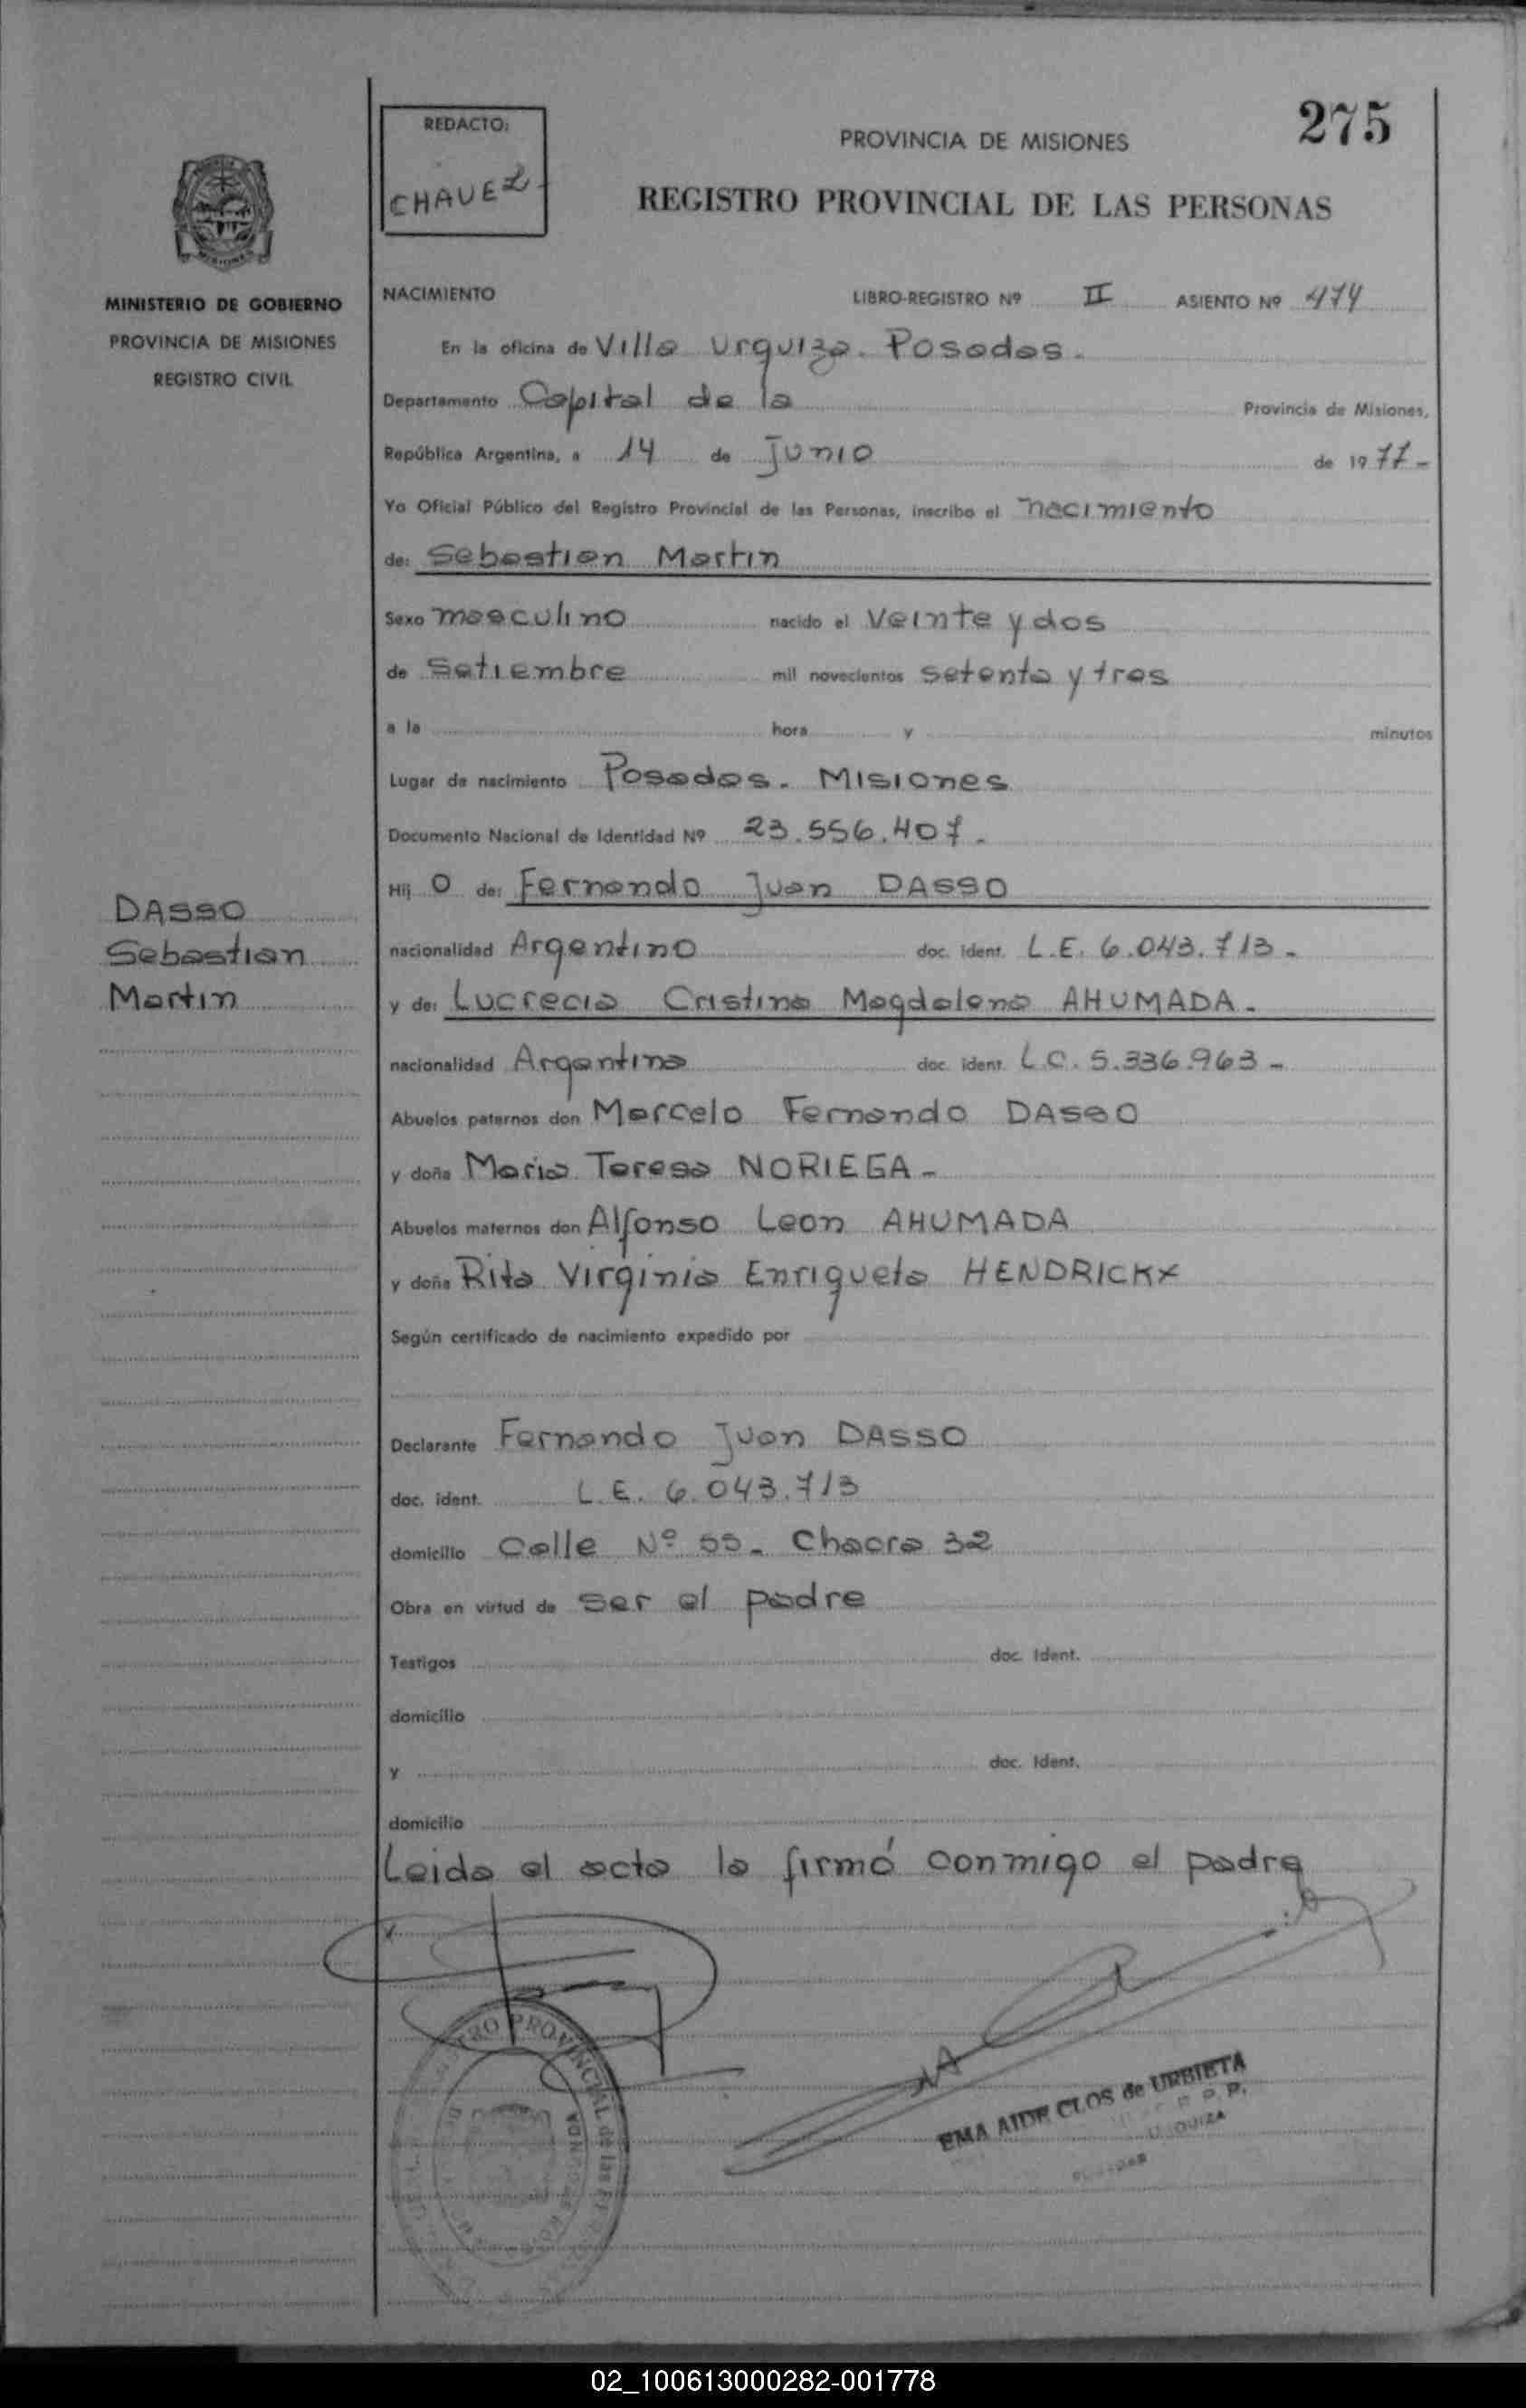 275
REDACTO:
CHAVEZ
PROVINCIA DE MISIONES
REGISTRO PROVINCIAL DE LAS PERSONAS
MISIONES
MINISTERIO DE GOBIERNO
PROVINCIA DE MISIONES
REGISTRO CIVIL
NACIMIENTO LIBRO-REGISTRO Nº II ASIENTO Nº 474
En la oficina de Villa Urquiza. Posadas.
Departamento Capital de la Provincia de Misiones,
República Argentina, a 14 de Junio de 1977-
Yo Oficial Público del Registro Provincial de las Personas, inscribo el nacimiento
de: Sebastian Martin
Sexo masculino nacido el Veinte y dos
de Setiembre mil novecientos setenta y tres
a la hora y minutos
Lugar de nacimiento Posadas. Misiones
Documento Nacional de Identidad Nº 23.556.407.
Hij o de: Fernando Juan DASSO
DASSO
Sebastian
Martin
nacionalidad Argentino doc. ident. L.E. 6.043.713-
y de: Lucrecia Cristina Magdalena AHUMADA-
nacionalidad Argentina doc. ident. L.C. 5.336.963-
Abuelos paternos don Marcelo Fernando DASSO
y doña Maria Teresa NORIEGA-
Abuelos maternos don Alfonso Leon AHUMADA
y doña Rita Virginia Enriqueta HENDRICKX
Según certificado de nacimiento expedido por
Declarante Fernando Juan DASSO
doc. ident. L.E. 6.043.713
domicilio Calle Nº 55- Chacra 32
Obra en virtud de ser el padre
Testigos doc. Ident.
domicilio
y doc. Ident.
domicilio
Leida el acta la firmó conmigo el padre
EMA AIDE CLOS de URBIETA
02_100613000282-001778